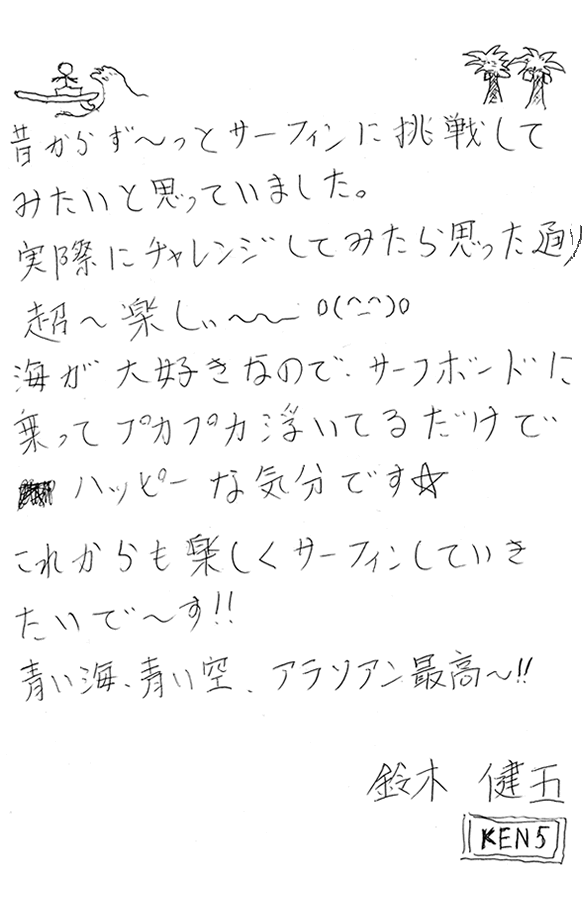 昔からず〜っとサーフィンに挑戦して
みたいと思っていました。
実際にチャレンジしてみたら思った通り
超〜楽しい〜〜 o(^-^)o
海が大好きなので、サーフボードに
乗ってプカプカ浮いてるだけで
ハッピーな気分です☆
これからも楽しくサーフィンしていき
たいで〜す!!
青い海、青い空、アラソアン最高〜!!
鈴木 健五
KEN5